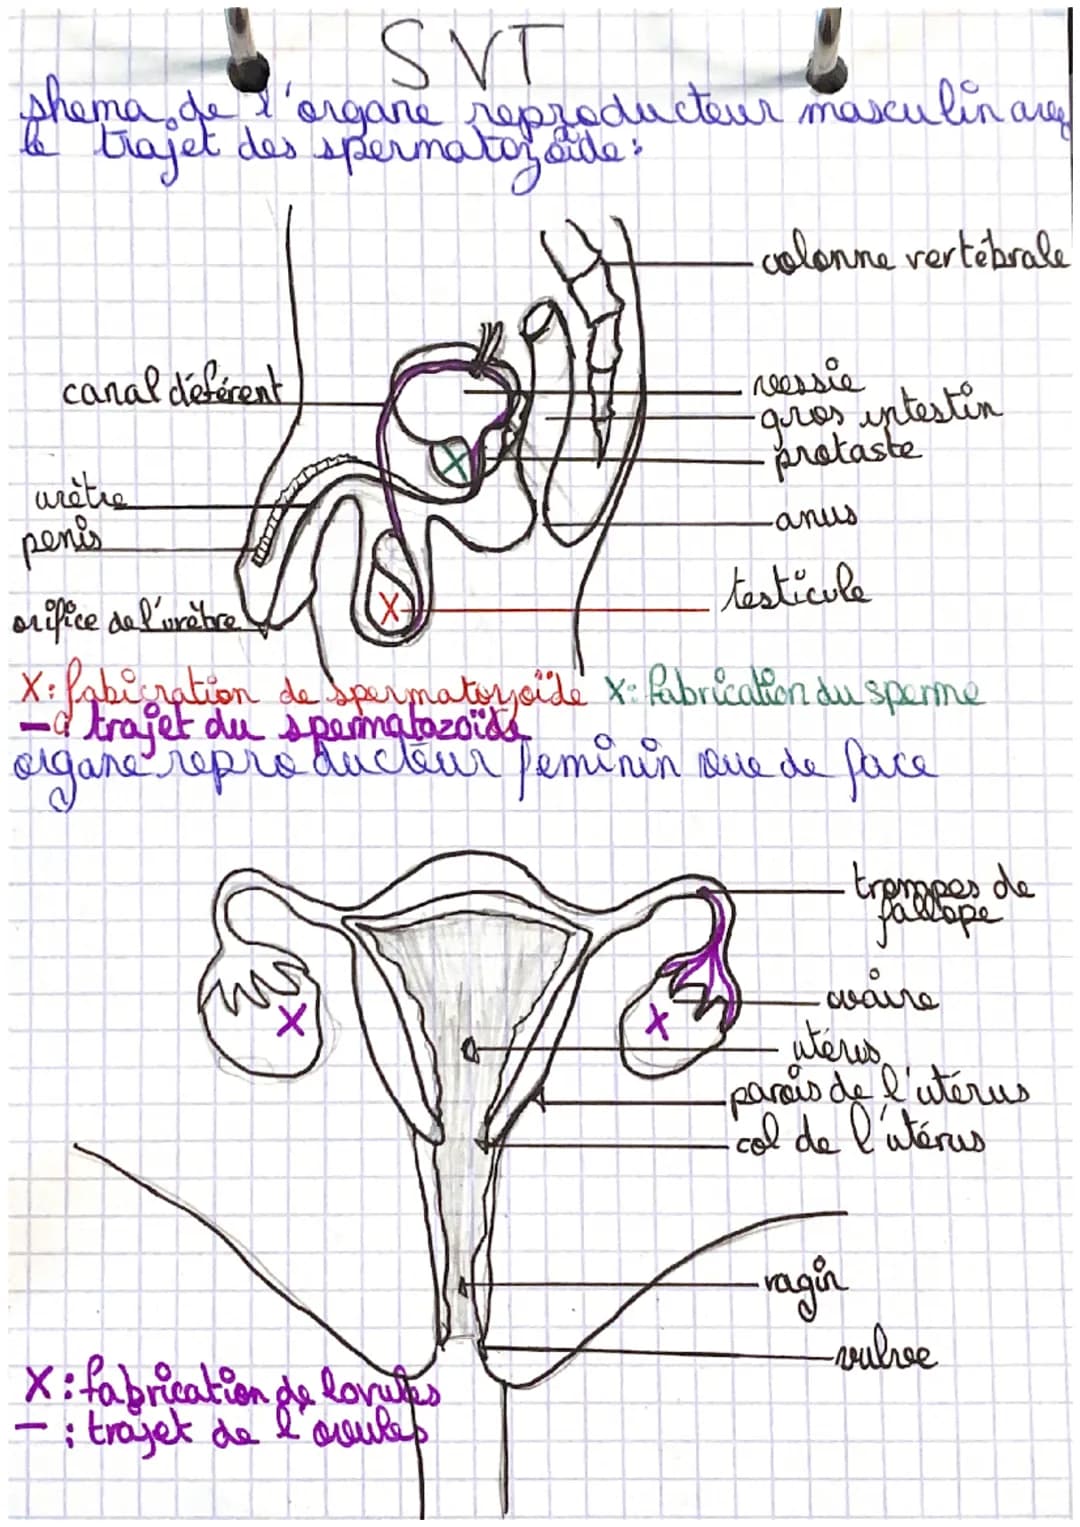 SVT
shema de l'organe reproducteur masculin avec
le trajet des spermatozoïde:
colonne vertébrale
canal déférent
vessie
gros intestin
protaste
urètre
anus
penis
testicule
orifice de l'urètre
X: fabicration de spermatozoïde X: fabrication du sperme
trajet du spermatozoïde
organe reproducteur feminin vue de face
trompes de
fallope
ovaire
utérus
parois de l'utérus
col de l'utérus
vagin
vulve
X: fabrication de lovules
— : trajet de l'ovules